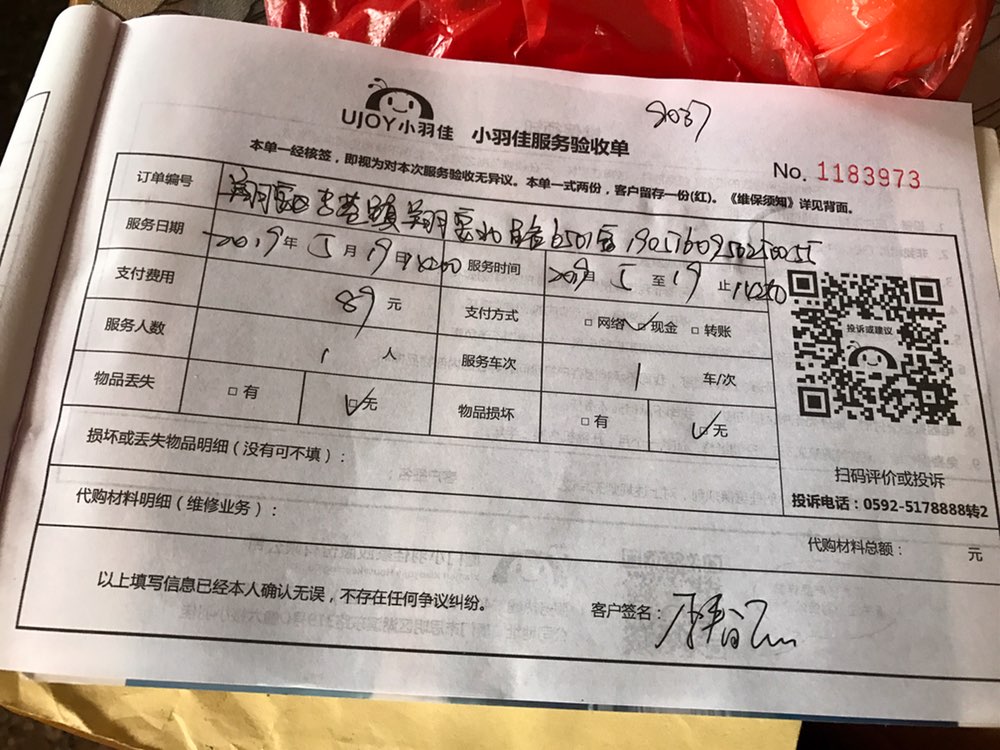 9037
UJOY小羽佳 小羽佳服务验收单
No. 1183973
本单一经核签，即视为对本次服务验收无异议。本单一式两份，客户留存一份(红)。《维保须知》详见背面。
订单编号
服务日期 2019年5月19日 服务时间 2019 5 至 19 止
支付费用 89元 支付方式 □网络 ☑现金 □转账
服务人数 1人 服务车次 车/次
物品丢失 □有 ☑无 物品损坏 □有 ☑无
投诉或建议
损坏或丢失物品明细（没有可不填）：
扫码评价或投诉
投诉电话：0592-5178888转2
代购材料明细（维修业务）：
代购材料总额： 元
以上填写信息已经本人确认无误，不存在任何争议纠纷。
客户签名：